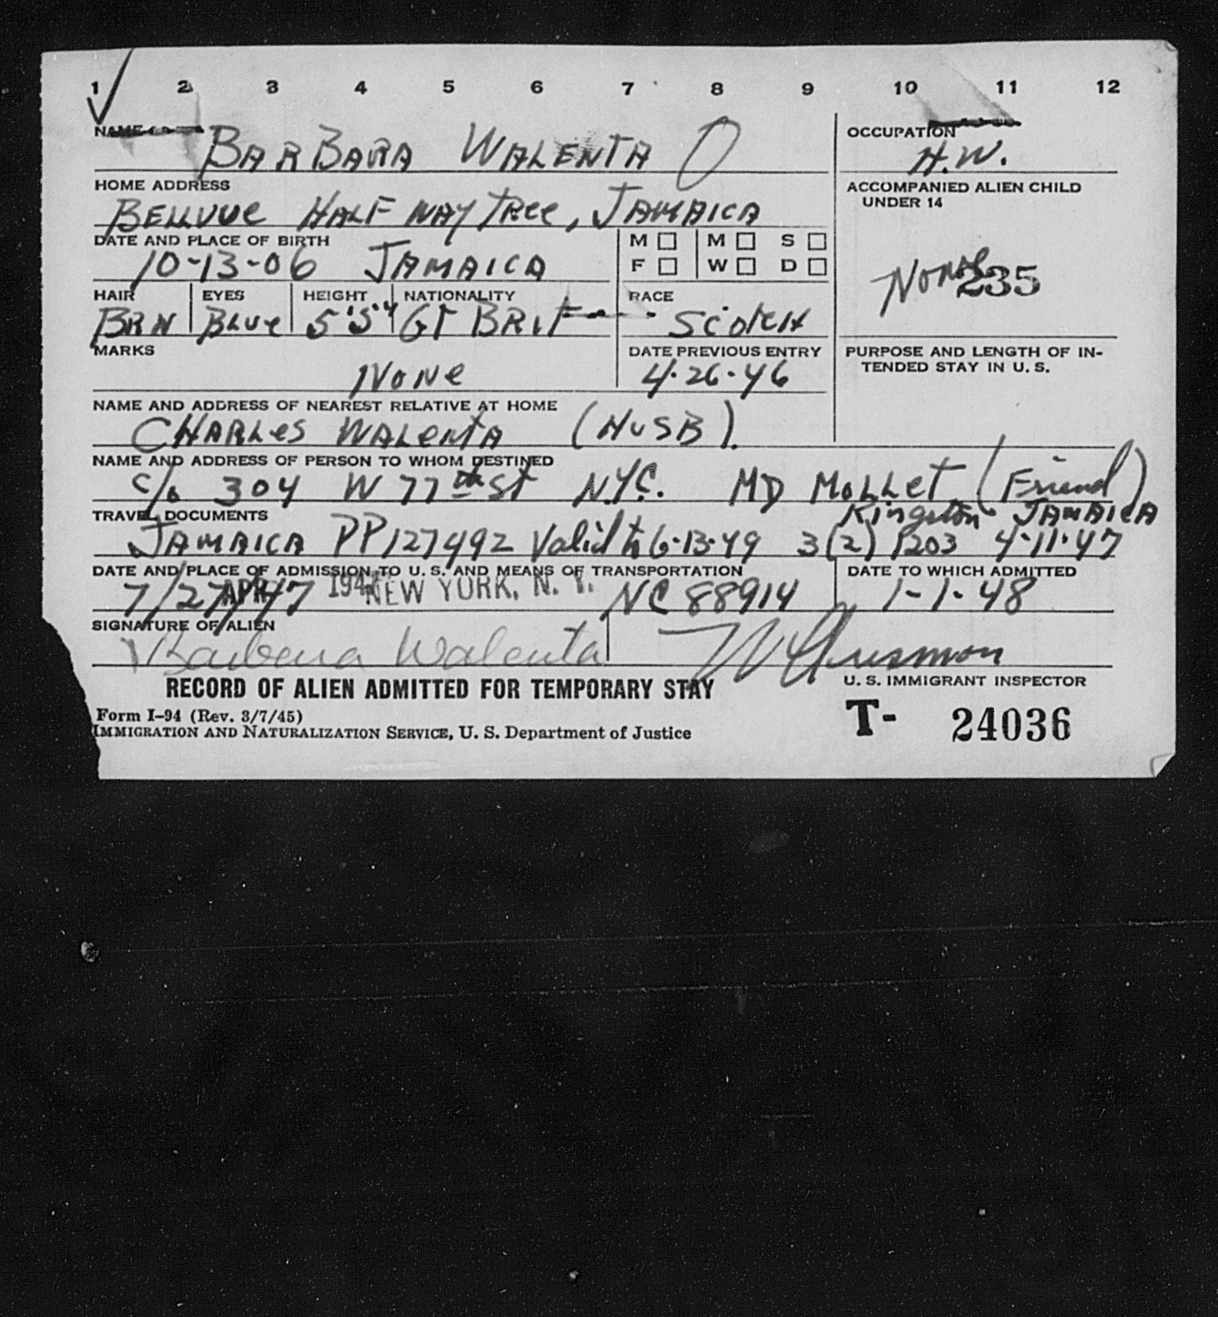 1 2 3 4 5 6 7 8 9 10 11 12
NAME BARBARA WALENTA
OCCUPATION H.W.
HOME ADDRESS
BELLVUE HALF WAY TREE, JAMAICA
ACCOMPANIED ALIEN CHILD
UNDER 14
None 235
DATE AND PLACE OF BIRTH
10-13-06 JAMAICA
M M S
F W D
HAIR EYES HEIGHT NATIONALITY RACE
BRN BLUE 5'5" GT BRIT SCOTCH
MARKS
NONE
DATE PREVIOUS ENTRY
4-26-46
PURPOSE AND LENGTH OF IN-
TENDED STAY IN U. S.
NAME AND ADDRESS OF NEAREST RELATIVE AT HOME
CHARLES WALENTA (HUSB)
NAME AND ADDRESS OF PERSON TO WHOM DESTINED
C/o 304 W 77th St N.Y.C. MD MOLLET (Friend)
TRAVEL DOCUMENTS
Kingston JAMAICA
JAMAICA PP127492 Valid to 6-13-49 3(2) 1203 4-11-47
DATE AND PLACE OF ADMISSION TO U. S. AND MEANS OF TRANSPORTATION
7/27/47 APR 194 NEW YORK, N. Y. NC 88914
DATE TO WHICH ADMITTED
1-1-48
SIGNATURE OF ALIEN
Barbara Walenta
U. S. IMMIGRANT INSPECTOR
RECORD OF ALIEN ADMITTED FOR TEMPORARY STAY
Form I-94 (Rev. 3/7/45)
IMMIGRATION AND NATURALIZATION SERVICE, U. S. Department of Justice
T- 24036